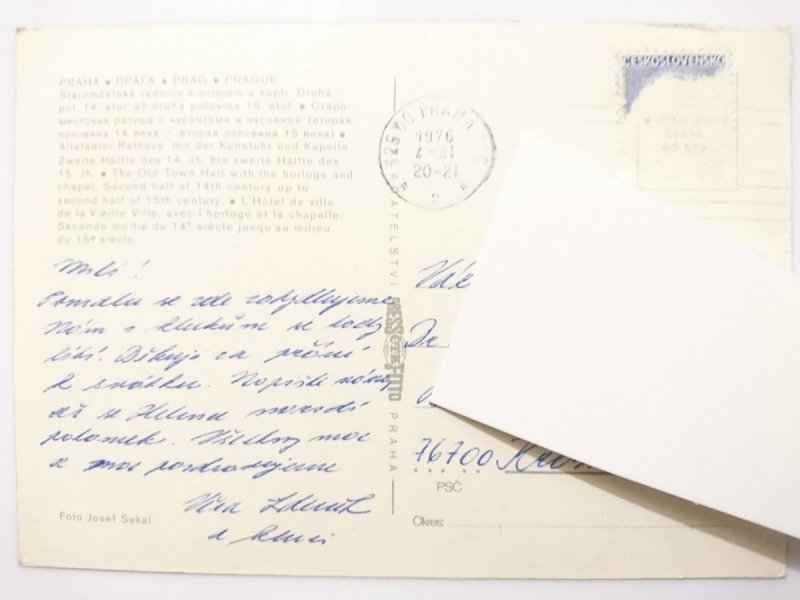 PRAHA • ПРАГА • PRAG • PRAGUE
Staroměstská radnice s orlojem a kaplí. Druhá
pol. 14. stol. až druhá polovina 15. stol. • Старо-
местская ратуша с курантами и часовней (вторая
половина 14 века — вторая половина 15 века) •
Altstädter Rathaus mit der Kunstuhr und Kapelle.
Zweite Hälfte des 14. Jh. bis zweite Hälfte des
15. Jh. • The Old Town Hall with the horloge and
chapel. Second half of 14th century up to
second half of 15th century. • L'Hôtel de ville
de la Vieille Ville, avec l'horloge et la chapelle.
Seconde moitié du 14e siécle jusqu'au milieu
du 15e siécle.
Milí!
Pomalu se zde
Nám s klukům se tady
líbí. Děkuji za přání
k svátku. Napište
až se Helena narodí
potomek. Všechny moc
a moc pozdravujeme
Věra Zdeněk
a kluci
Foto Josef Sekal
PRESSFOTO
PRAHA
ČESKOSLOVENSKO
PRAHA
1976
20-21
2
Dr
76700
PSČ
Okres: